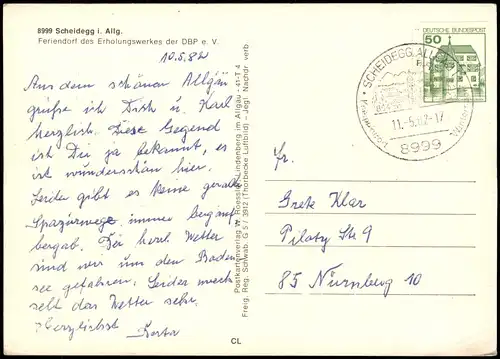 8999 Scheidegg i. Allg.
Feriendorf des Erholungswerkes der DBP e. V.
10.5.82
Aus dem schönen Allgäu
grüße ich Dich u. Karl
herzlich. Diese Gegend
ist Dir ja bekannt, es
ist wunderschön hier.
Leider gibt es keine gerade
Spazierwege immer bergauf
bergab. Bei herrl. Wetter
sind wir um den Boden
see gefahren. Leider wech
selt das Wetter sehr.
Herzlichst
Postkartenverlag W. Roessler, Lindenberg im Allgäu
Freig. Reg. Schwab. G 5 / 3912 (Thorbecke Luftbild) – Jegl. Nachdr. verb.
CL
DEUTSCHE BUNDESPOST
50
SCHEIDEGG, ALLGÄU
11.-5.82-17
8999
Fr.
Grete Klar
Piloty Str 9
85 Nürnberg 10